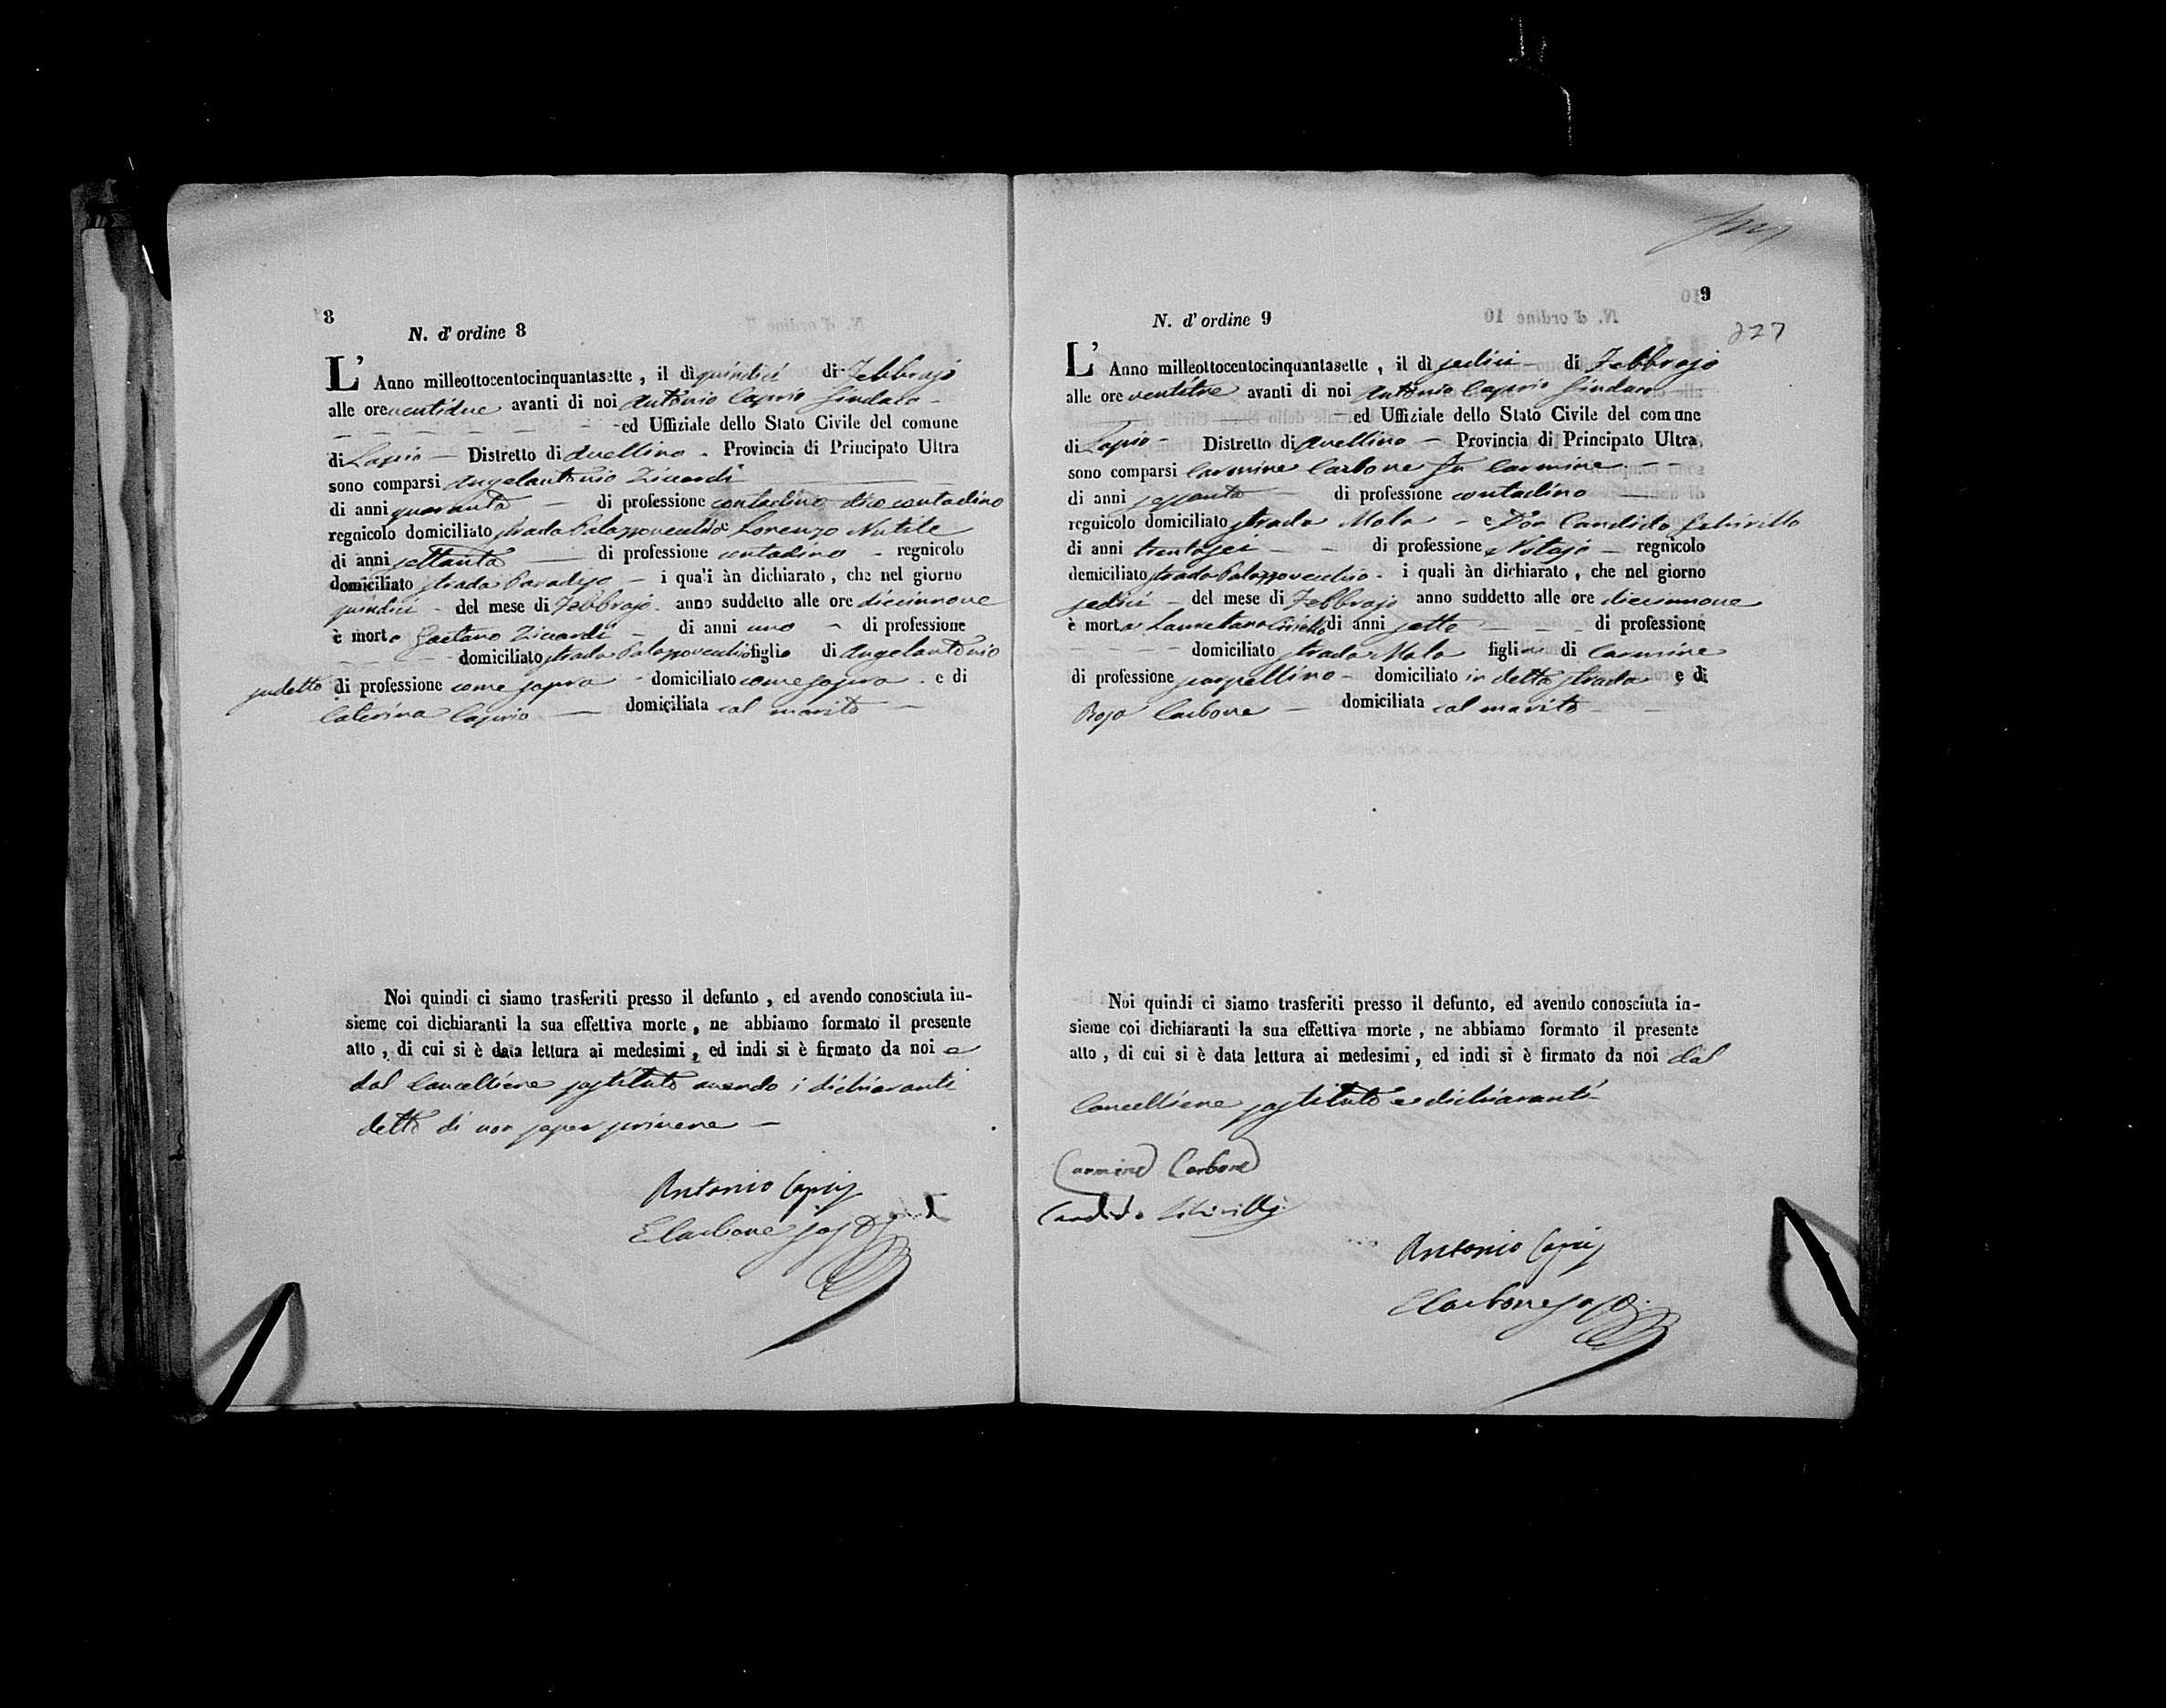 8
N. d' ordine 8
L' Anno milleottocentocinquantasette , il dì quindici di Febbrajo
alle ore ventidue avanti di noi Antonio Caprio Sindaco
ed Uffiziale dello Stato Civile del comune
di Lapio — Distretto di Avellino - Provincia di Principato Ultra
sono comparsi Angelantonio Ziccardi
di anni quaranta — di professione contadino
regnicolo domiciliato strada Palazzovecchio e Lorenzo Nutile
di anni settanta — di professione contadino - regnicolo
domiciliato strada Paradiso — i quali àn dichiarato , che nel giorno
quindici - del mese di Febbrajo - anno suddetto alle ore diecinnove
è morto Gaetano Ziccardi - di anni uno - di professione
domiciliato strada Palazzovecchio figlio di Angelantonio
sudetto di professione come sopra - domiciliato come sopra - e di
Caterina Caprio — domiciliata col marito —
Noi quindi ci siamo trasferiti presso il defunto , ed avendo conosciuta in-
sieme coi dichiaranti la sua effettiva morte , ne abbiamo formato il presente
atto , di cui si è data lettura ai medesimi , ed indi si è firmato da noi e
dal Cancelliere sostituto avendo i dichiaranti
detto di non saper scrivere —
Antonio Caprio
E Carbone sost
9
N. d' ordine 9
277
L' Anno milleottocentocinquantasette , il dì sedici — di Febbrajo
alle ore ventitre avanti di noi Antonio Caprio Sindaco
— ed Uffiziale dello Stato Civile del comune
di Lapio - Distretto di Avellino — Provincia di Principato Ultra
sono comparsi Carmine Carbone fu Carmine - -
di anni sessanta di professione contadino
regnicolo domiciliato strada Mala - e Don Candido
di anni trentasei - - di professione Notajo — regnicolo
domiciliato strada Palazzovecchio - i quali àn dichiarato , che nel giorno
sedici — del mese di Febbrajo anno suddetto alle ore diecinnove
è morta Lauretana di anni sette - - - di professione
- - - domiciliato strada Mala figlia di Carmine
di professione scarpellino - domiciliato in detta strada e di
Rosa Carbone — domiciliata col marito -
Noi quindi ci siamo trasferiti presso il defunto, ed avendo conosciuta in-
sieme coi dichiaranti la sua effettiva morte , ne abbiamo formato il presente
atto , di cui si è data lettura ai medesimi , ed indi si è firmato da noi dal
Cancelliere sostituto e dichiaranti
Carmine Carbone
Candido
Antonio Caprio
E Carbone sost